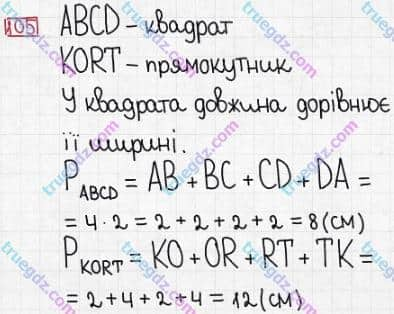 105 ABCD – квадрат
KORT – прямокутник
У квадрата довжина дорівнює
її ширині.
P ABCD = AB + BC + CD + DA =
= 4 · 2 = 2 + 2 + 2 + 2 = 8 (см)
P KORT = KO + OR + RT + TK =
= 2 + 4 + 2 + 4 = 12 (см)
truegdz.com